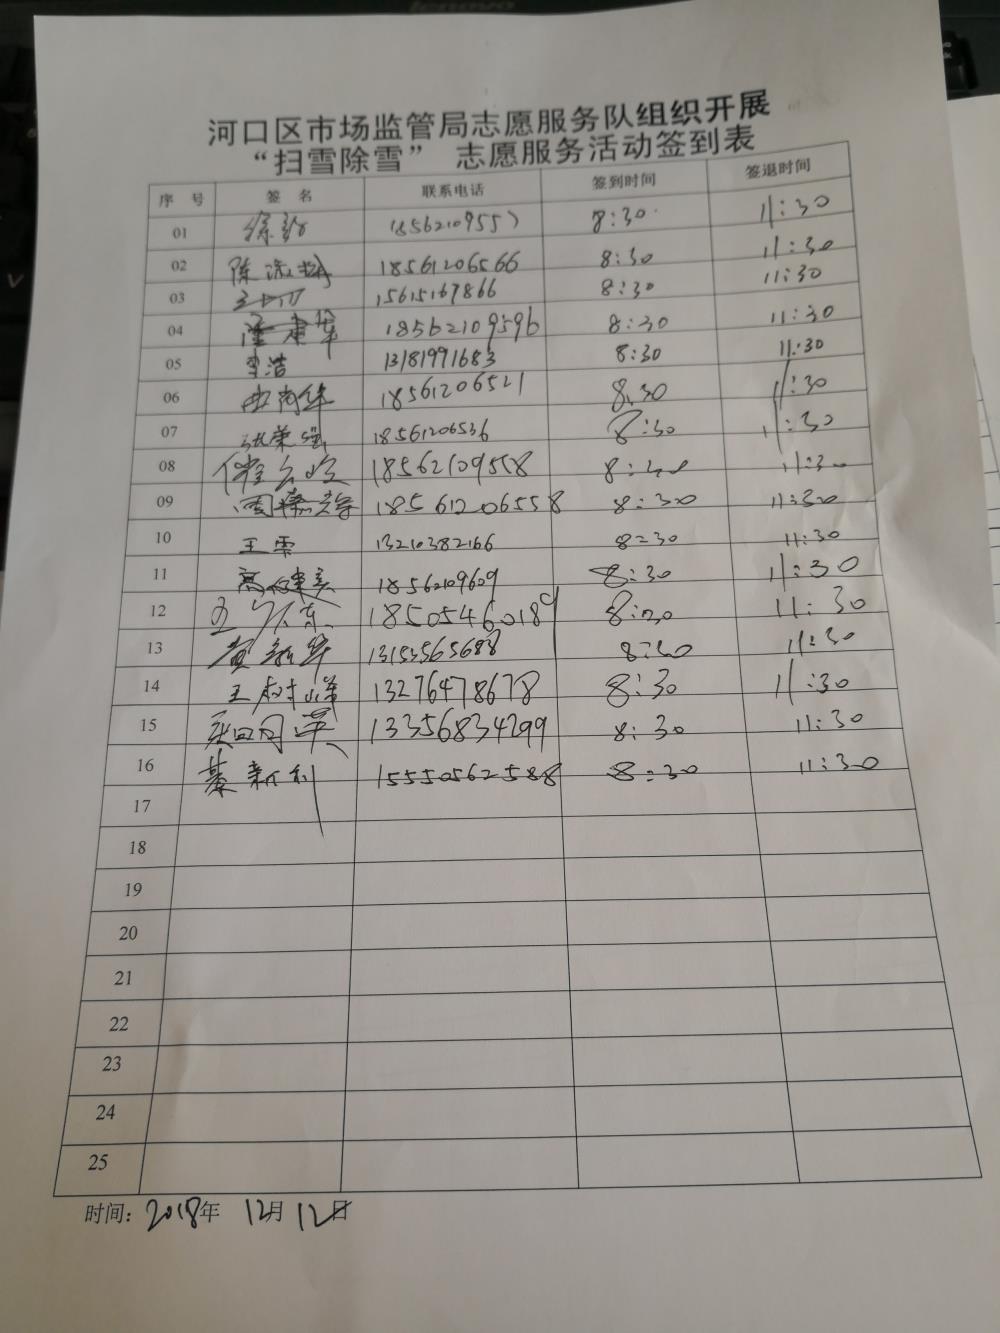 lenovo
河口区市场监管局志愿服务队组织开展
“扫雪除雪” 志愿服务活动签到表
序 号 签 名 联系电话 签到时间 签退时间
01 1856210955 8:30 11:30
02 陈 18561206566 8:30 11:30
03 15615167866 8:30 11:30
04 18562109596 8:30 11:30
05 李浩 13181991683 8:30 11:30
06 18561206521 8:30 11:30
07 张荣强 18561206536 8:30 11:30
08 18562109558 8:30 11:30
09 18561206558 8:30 11:30
10 王雷 13210382166 8:30 11:30
11 高 18562109609 8:30 11:30
12 18505460189 8:30 11:30
13 贺新华 13153565688 8:30 11:30
14 王树峰 13276478678 8:30 11:30
15 13356834299 8:30 11:30
16 綦新利 15550562588 8:30 11:30
17
18
19
20
21
22
23
24
25
时间：2018年 12月12日